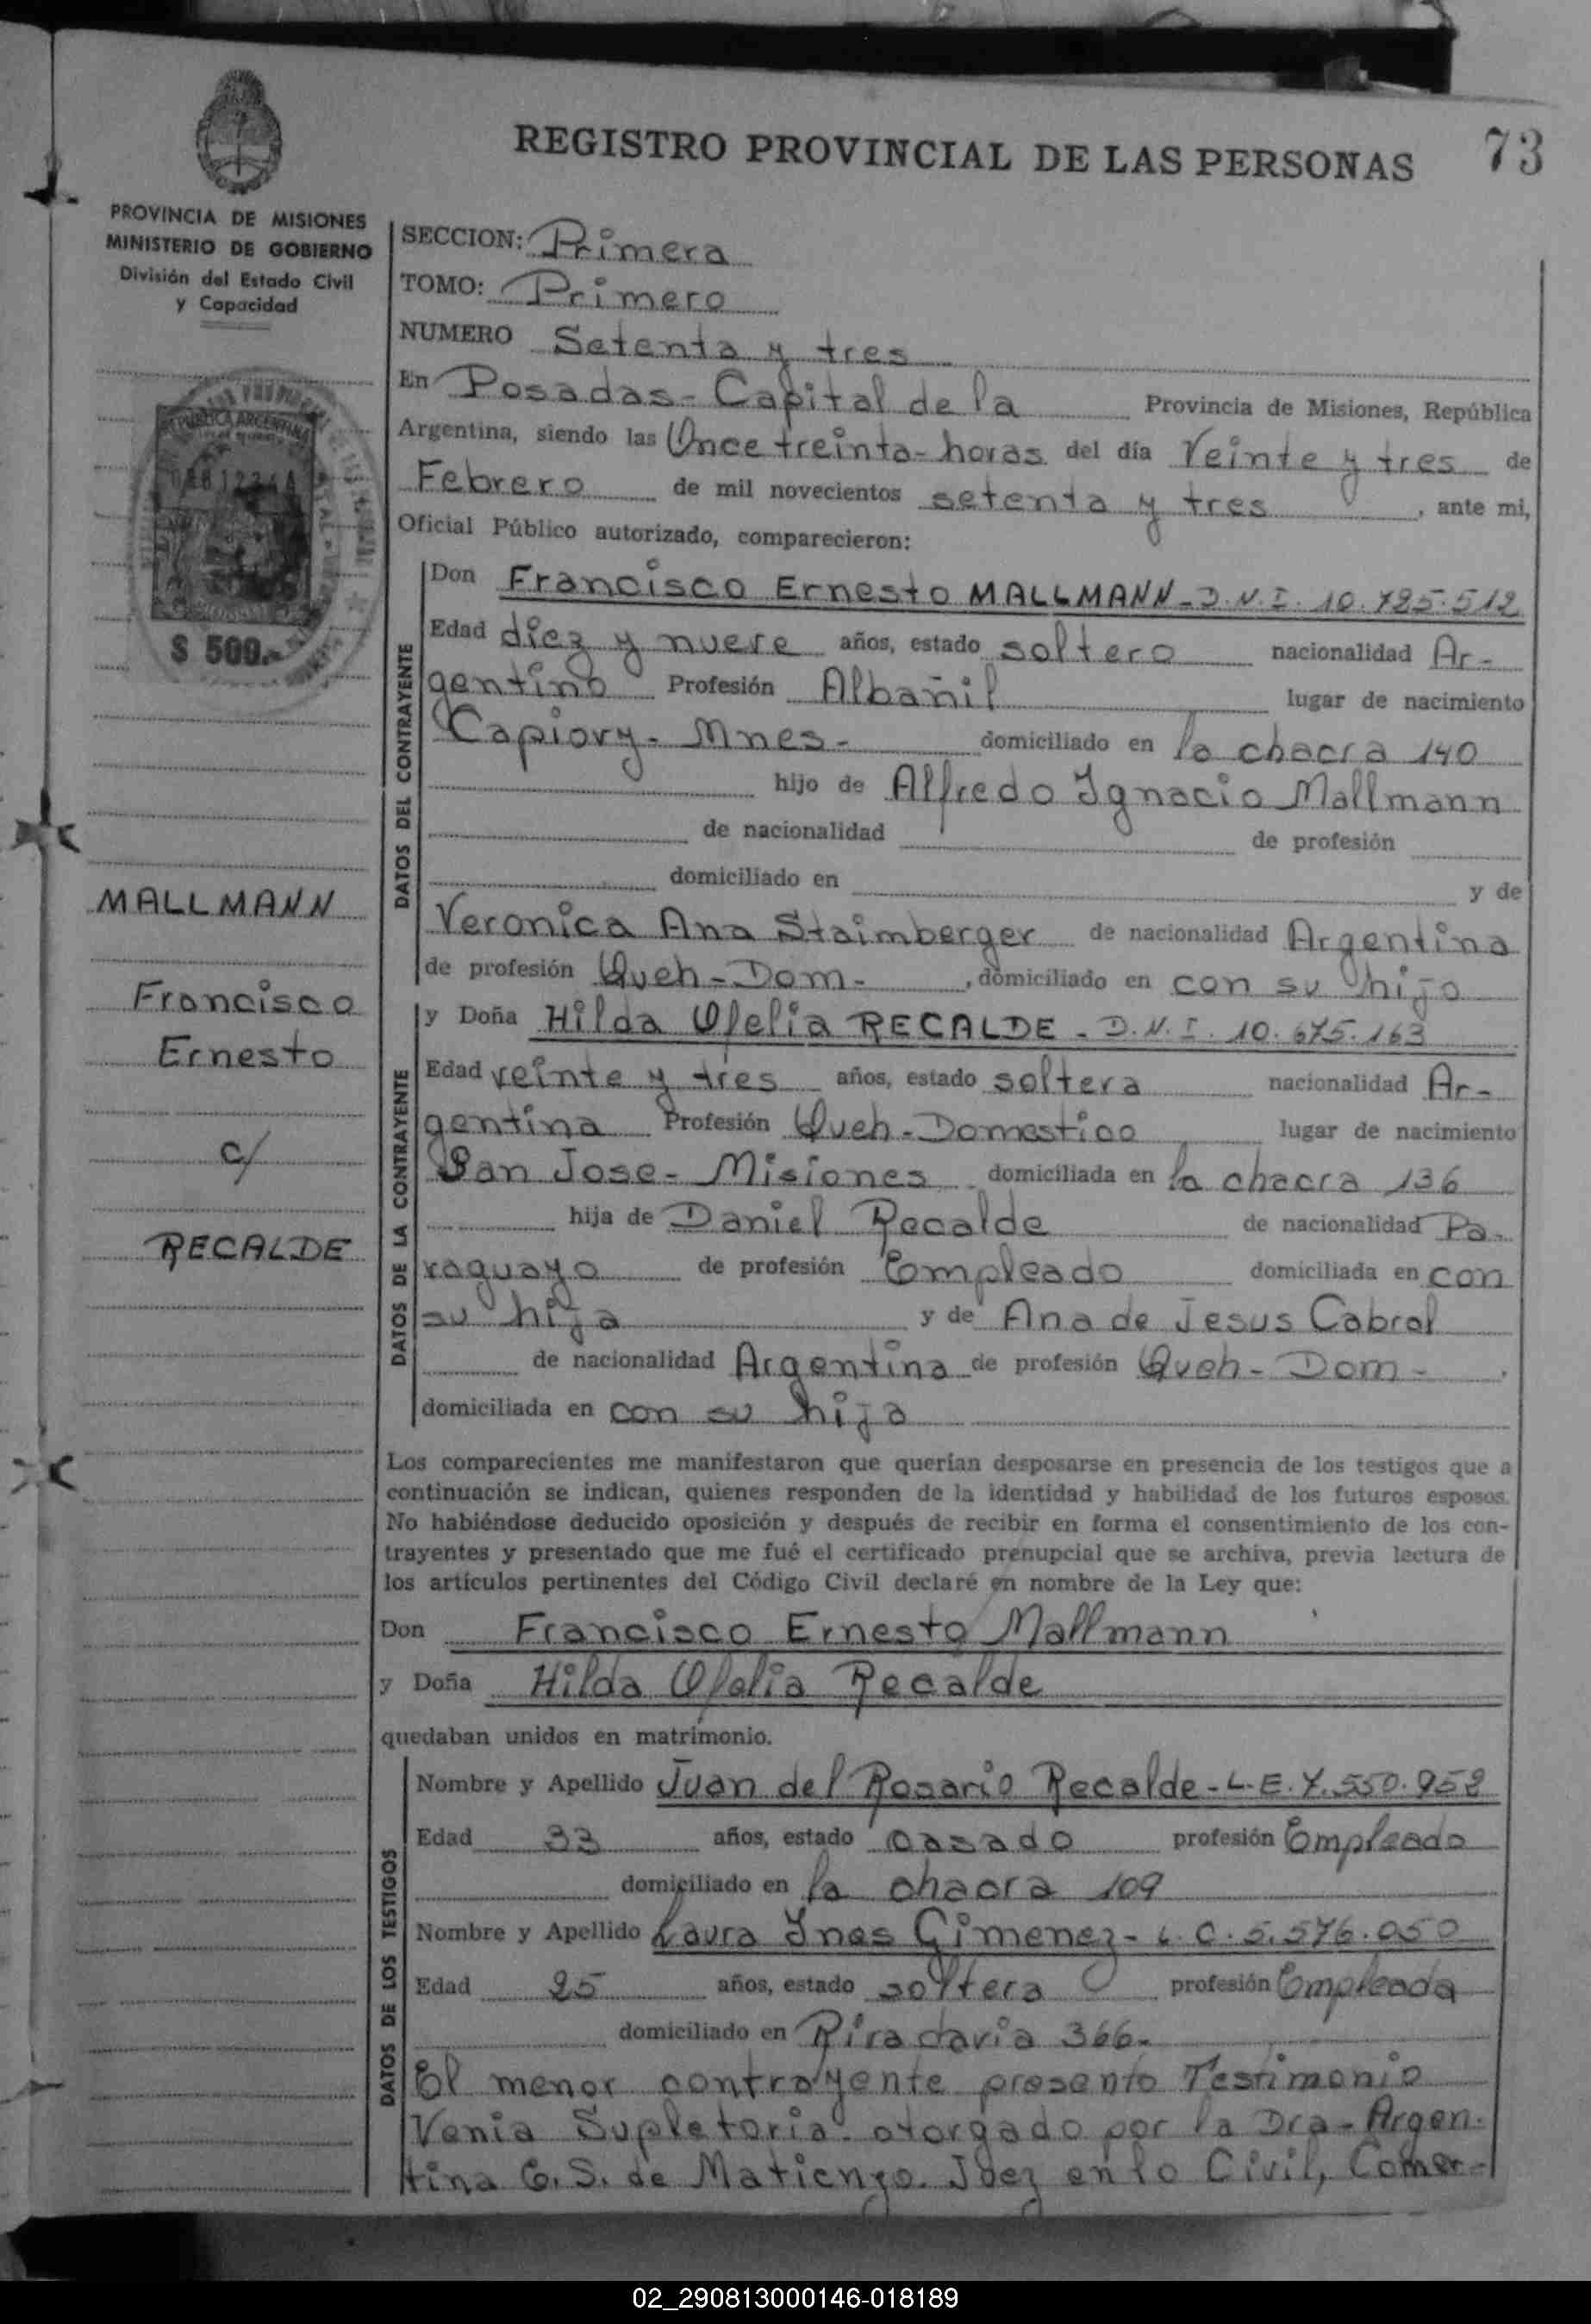 REGISTRO PROVINCIAL DE LAS PERSONAS 73
PROVINCIA DE MISIONES
MINISTERIO DE GOBIERNO
División del Estado Civil
y Capacidad
REPUBLICA ARGENTINA
$ 500.-
MALLMANN
Francisco
Ernesto
c/
RECALDE
SECCION: Primera
TOMO: Primero
NUMERO Setenta y tres
En Posadas - Capital de la Provincia de Misiones, República
Argentina, siendo las Once treinta - horas del día Veinte y tres de
Febrero de mil novecientos setenta y tres, ante mi,
Oficial Público autorizado, comparecieron:
DATOS DEL CONTRAYENTE
Don Francisco Ernesto MALLMANN - D.N.I. 10.725.512
Edad diez y nueve años, estado soltero nacionalidad Ar-
gentino Profesión Albañil lugar de nacimiento
Capiovy - Mnes - domiciliado en la chacra 140
hijo de Alfredo Ignacio Mallmann
de nacionalidad de profesión
domiciliado en y de
Veronica Ana Staimberger de nacionalidad Argentina
de profesión Queh - Dom -, domiciliado en con su hijo
DATOS DE LA CONTRAYENTE
y Doña Hilda Ofelia RECALDE - D.N.I. 10.675.163
Edad veinte y tres años, estado soltera nacionalidad Ar-
gentina Profesión Queh - Domestico lugar de nacimiento
San Jose - Misiones domiciliada en la chacra 136
hija de Daniel Recalde de nacionalidad Pa-
raguayo de profesión Empleado domiciliada en con
su hija y de Ana de Jesus Cabral
de nacionalidad Argentina de profesión Queh - Dom -
domiciliada en con su hija
Los comparecientes me manifestaron que querían desposarse en presencia de los testigos que a
continuación se indican, quienes responden de la identidad y habilidad de los futuros esposos.
No habiéndose deducido oposición y después de recibir en forma el consentimiento de los con-
trayentes y presentado que me fué el certificado prenupcial que se archiva, previa lectura de
los artículos pertinentes del Código Civil declaré en nombre de la Ley que:
Don Francisco Ernesto Mallmann
y Doña Hilda Ofelia Recalde
quedaban unidos en matrimonio.
DATOS DE LOS TESTIGOS
Nombre y Apellido Juan del Rosario Recalde - L.E. 7.550.952
Edad 33 años, estado casado profesión Empleado
domiciliado en la chacra 109
Nombre y Apellido Laura Ines Gimenez - L.C. 5.576.050
Edad 25 años, estado soltera profesión Empleada
domiciliado en Rivadavia 366.
El menor contrayente presento Testimonio
Venia Supletoria otorgado por la Dra - Argen-
tina G. S. de Matienzo. Juez en lo Civil, Comer-
02_290813000146-018189